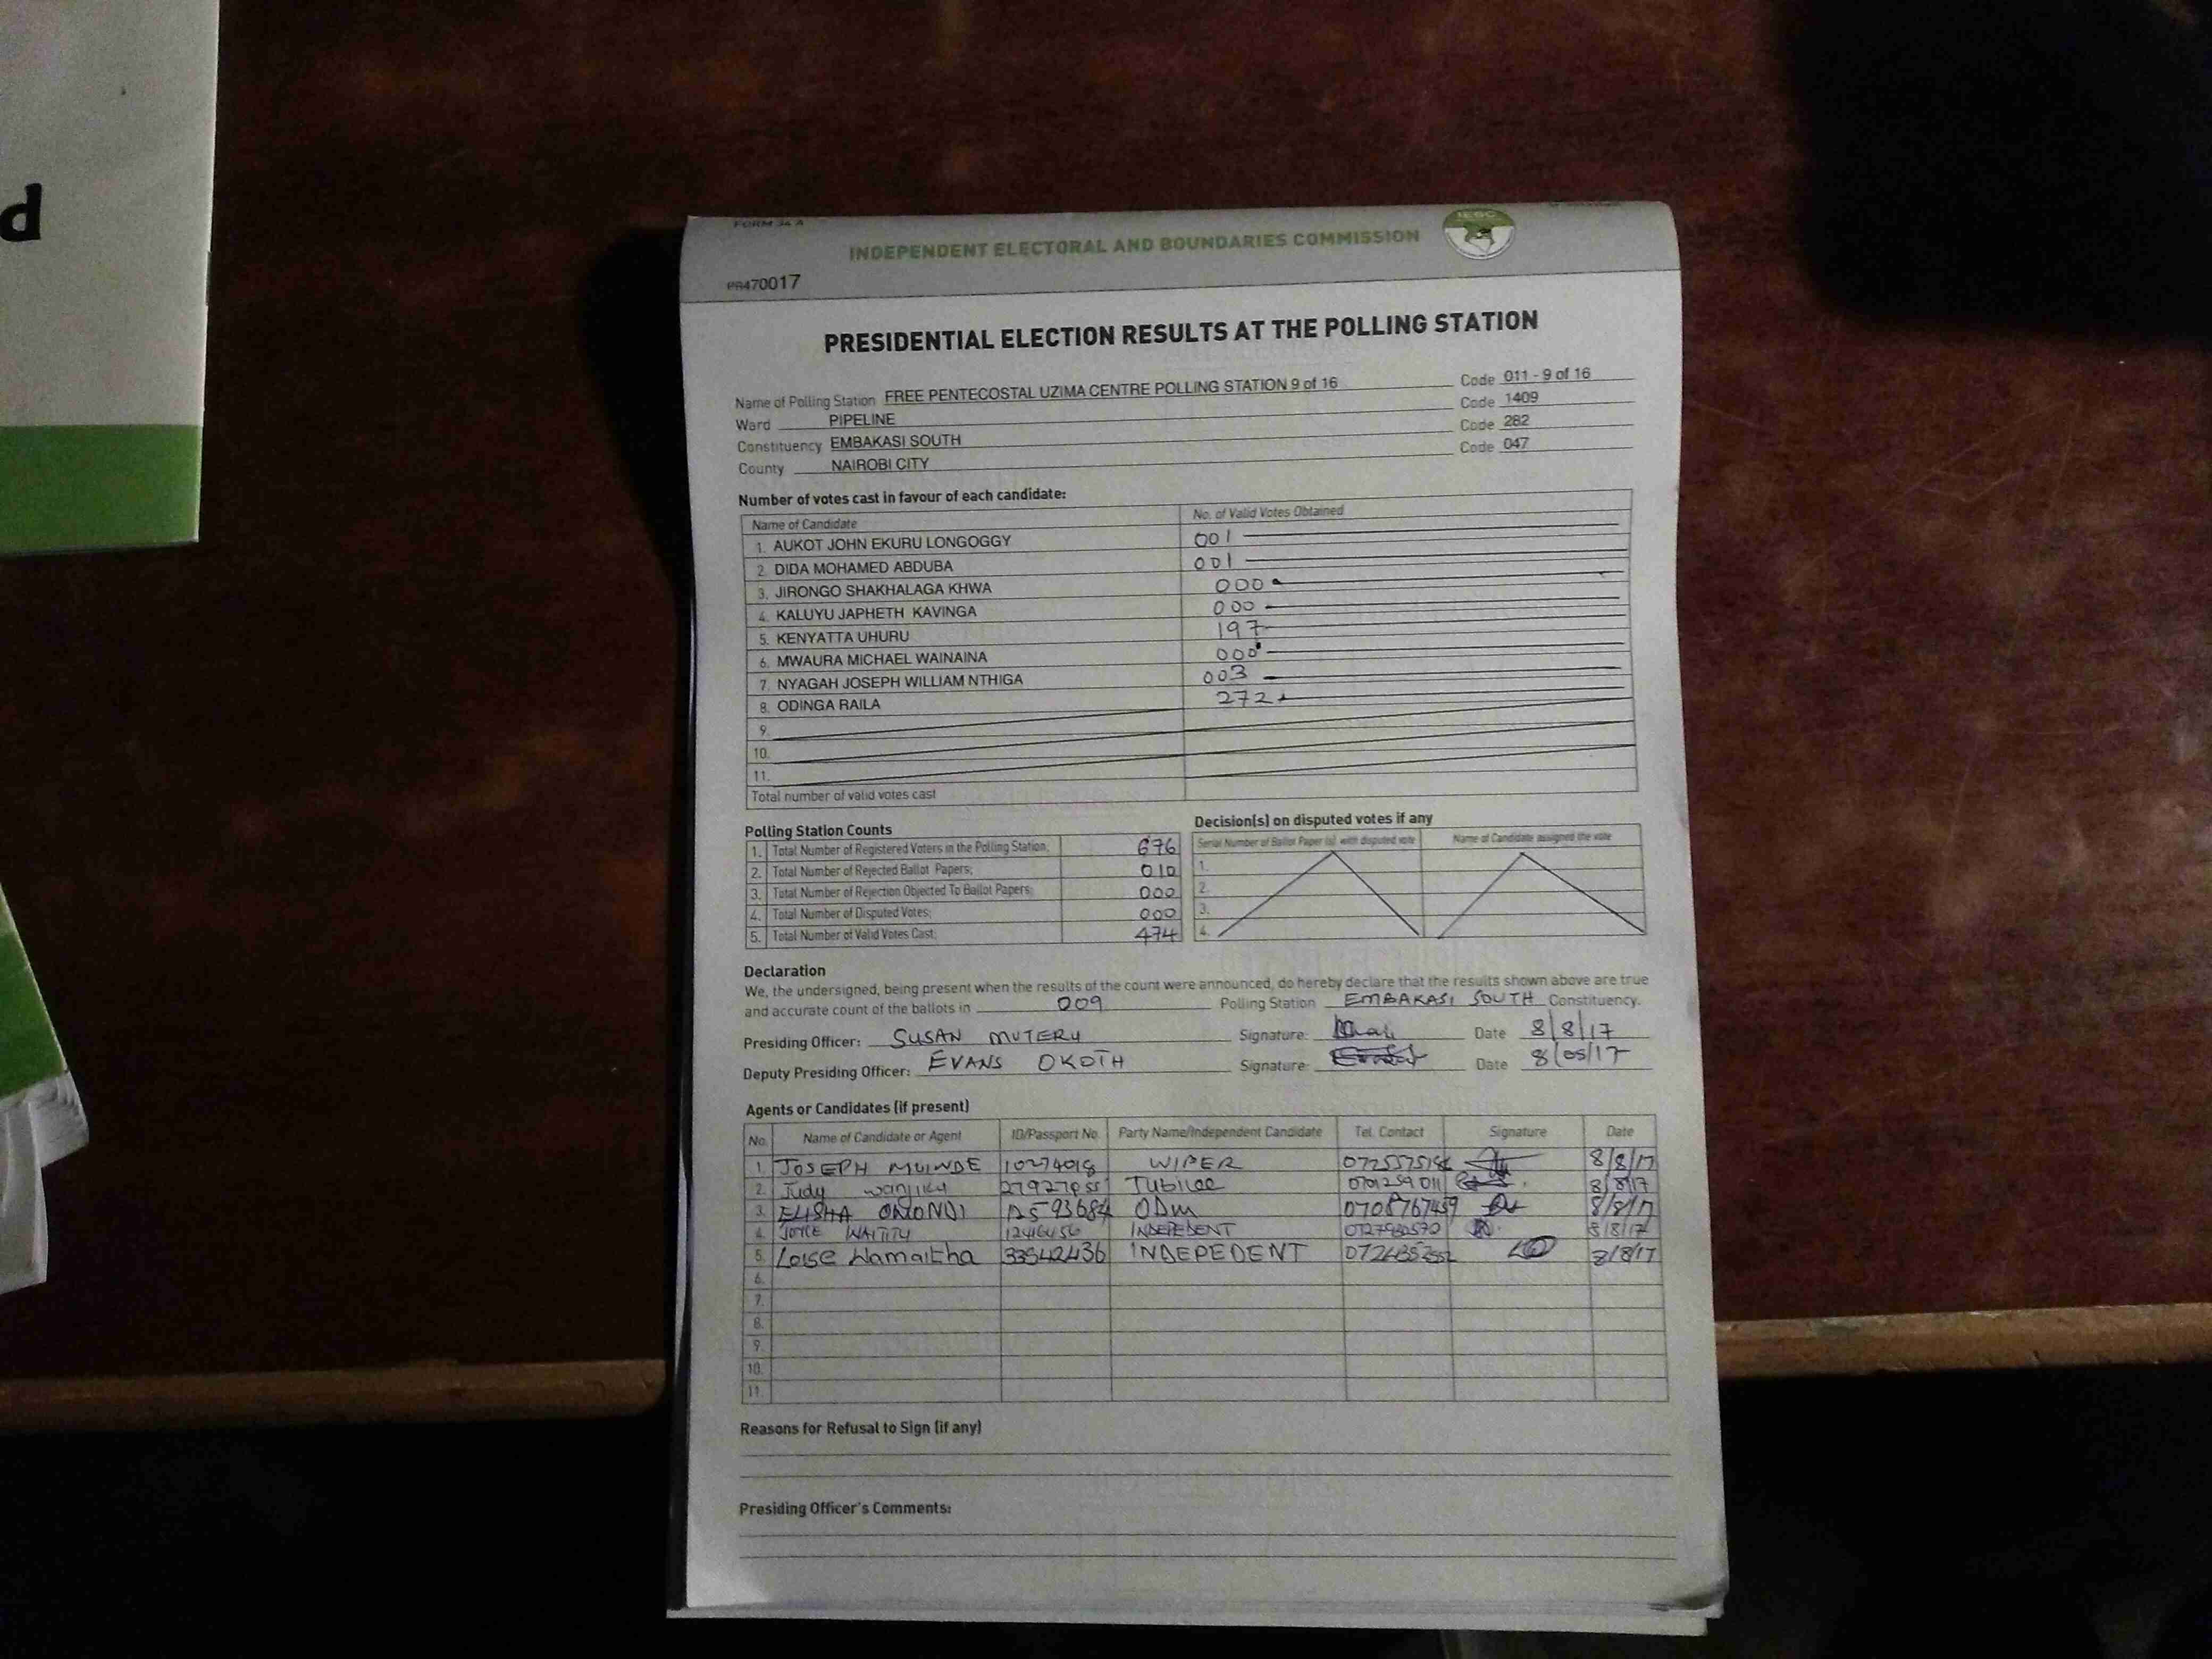 d
FORM 34 A
INDEPENDENT ELECTORAL AND BOUNDARIES COMMISSION
IEBC
PR470017
PRESIDENTIAL ELECTION RESULTS AT THE POLLING STATION
Name of Polling Station FREE PENTECOSTAL UZIMA CENTRE POLLING STATION 9 of 16 Code 011 - 9 of 16
Ward PIPELINE Code 1409
Constituency EMBAKASI SOUTH Code 282
County NAIROBI CITY Code 047
Number of votes cast in favour of each candidate:
Name of Candidate No. of Valid Votes Obtained
1. AUKOT JOHN EKURU LONGOGGY 001
2. DIDA MOHAMED ABDUBA 001
3. JIRONGO SHAKHALAGA KHWA 000
4. KALUYU JAPHETH KAVINGA 000
5. KENYATTA UHURU 197
6. MWAURA MICHAEL WAINAINA 000
7. NYAGAH JOSEPH WILLIAM NTHIGA 003
8. ODINGA RAILA 272
9.
10.
11.
Total number of valid votes cast
Polling Station Counts
1. Total Number of Registered Voters in the Polling Station; 676
2. Total Number of Rejected Ballot Papers; 010
3. Total Number of Rejection Objected To Ballot Papers; 000
4. Total Number of Disputed Votes; 000
5. Total Number of Valid Votes Cast; 474
Decision(s) on disputed votes if any
Serial Number of Ballot Paper (s) with disputed vote Name of Candidate assigned the vote
1.
2.
3.
4.
Declaration
We, the undersigned, being present when the results of the count were announced, do hereby declare that the results shown above are true
and accurate count of the ballots in 009 Polling Station EMBAKASI SOUTH Constituency.
Presiding Officer: SUSAN MUTERU Signature: Date 8/8/17
Deputy Presiding Officer: EVANS OKOTH Signature: Date 8/08/17
Agents or Candidates (if present)
No. Name of Candidate or Agent ID/Passport No. Party Name/Independent Candidate Tel. Contact Signature Date
1. JOSEPH MUINDE 10274018 WIPER 8/8/17
2. Judy Wanjiku Jubilee 8/8/17
3. ELISHA OMONDI ODM 0708767459 8/8/17
4. JOYCE WAITITU 12416456 INDEPEDENT 8/8/17
5. Loise Wamaitha 33542436 INDEPEDENT 8/8/17
6.
7.
8.
9.
10.
11.
Reasons for Refusal to Sign (if any)
Presiding Officer's Comments: